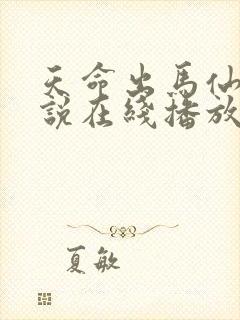 天命出馬仙
說在綫播放
夏敏